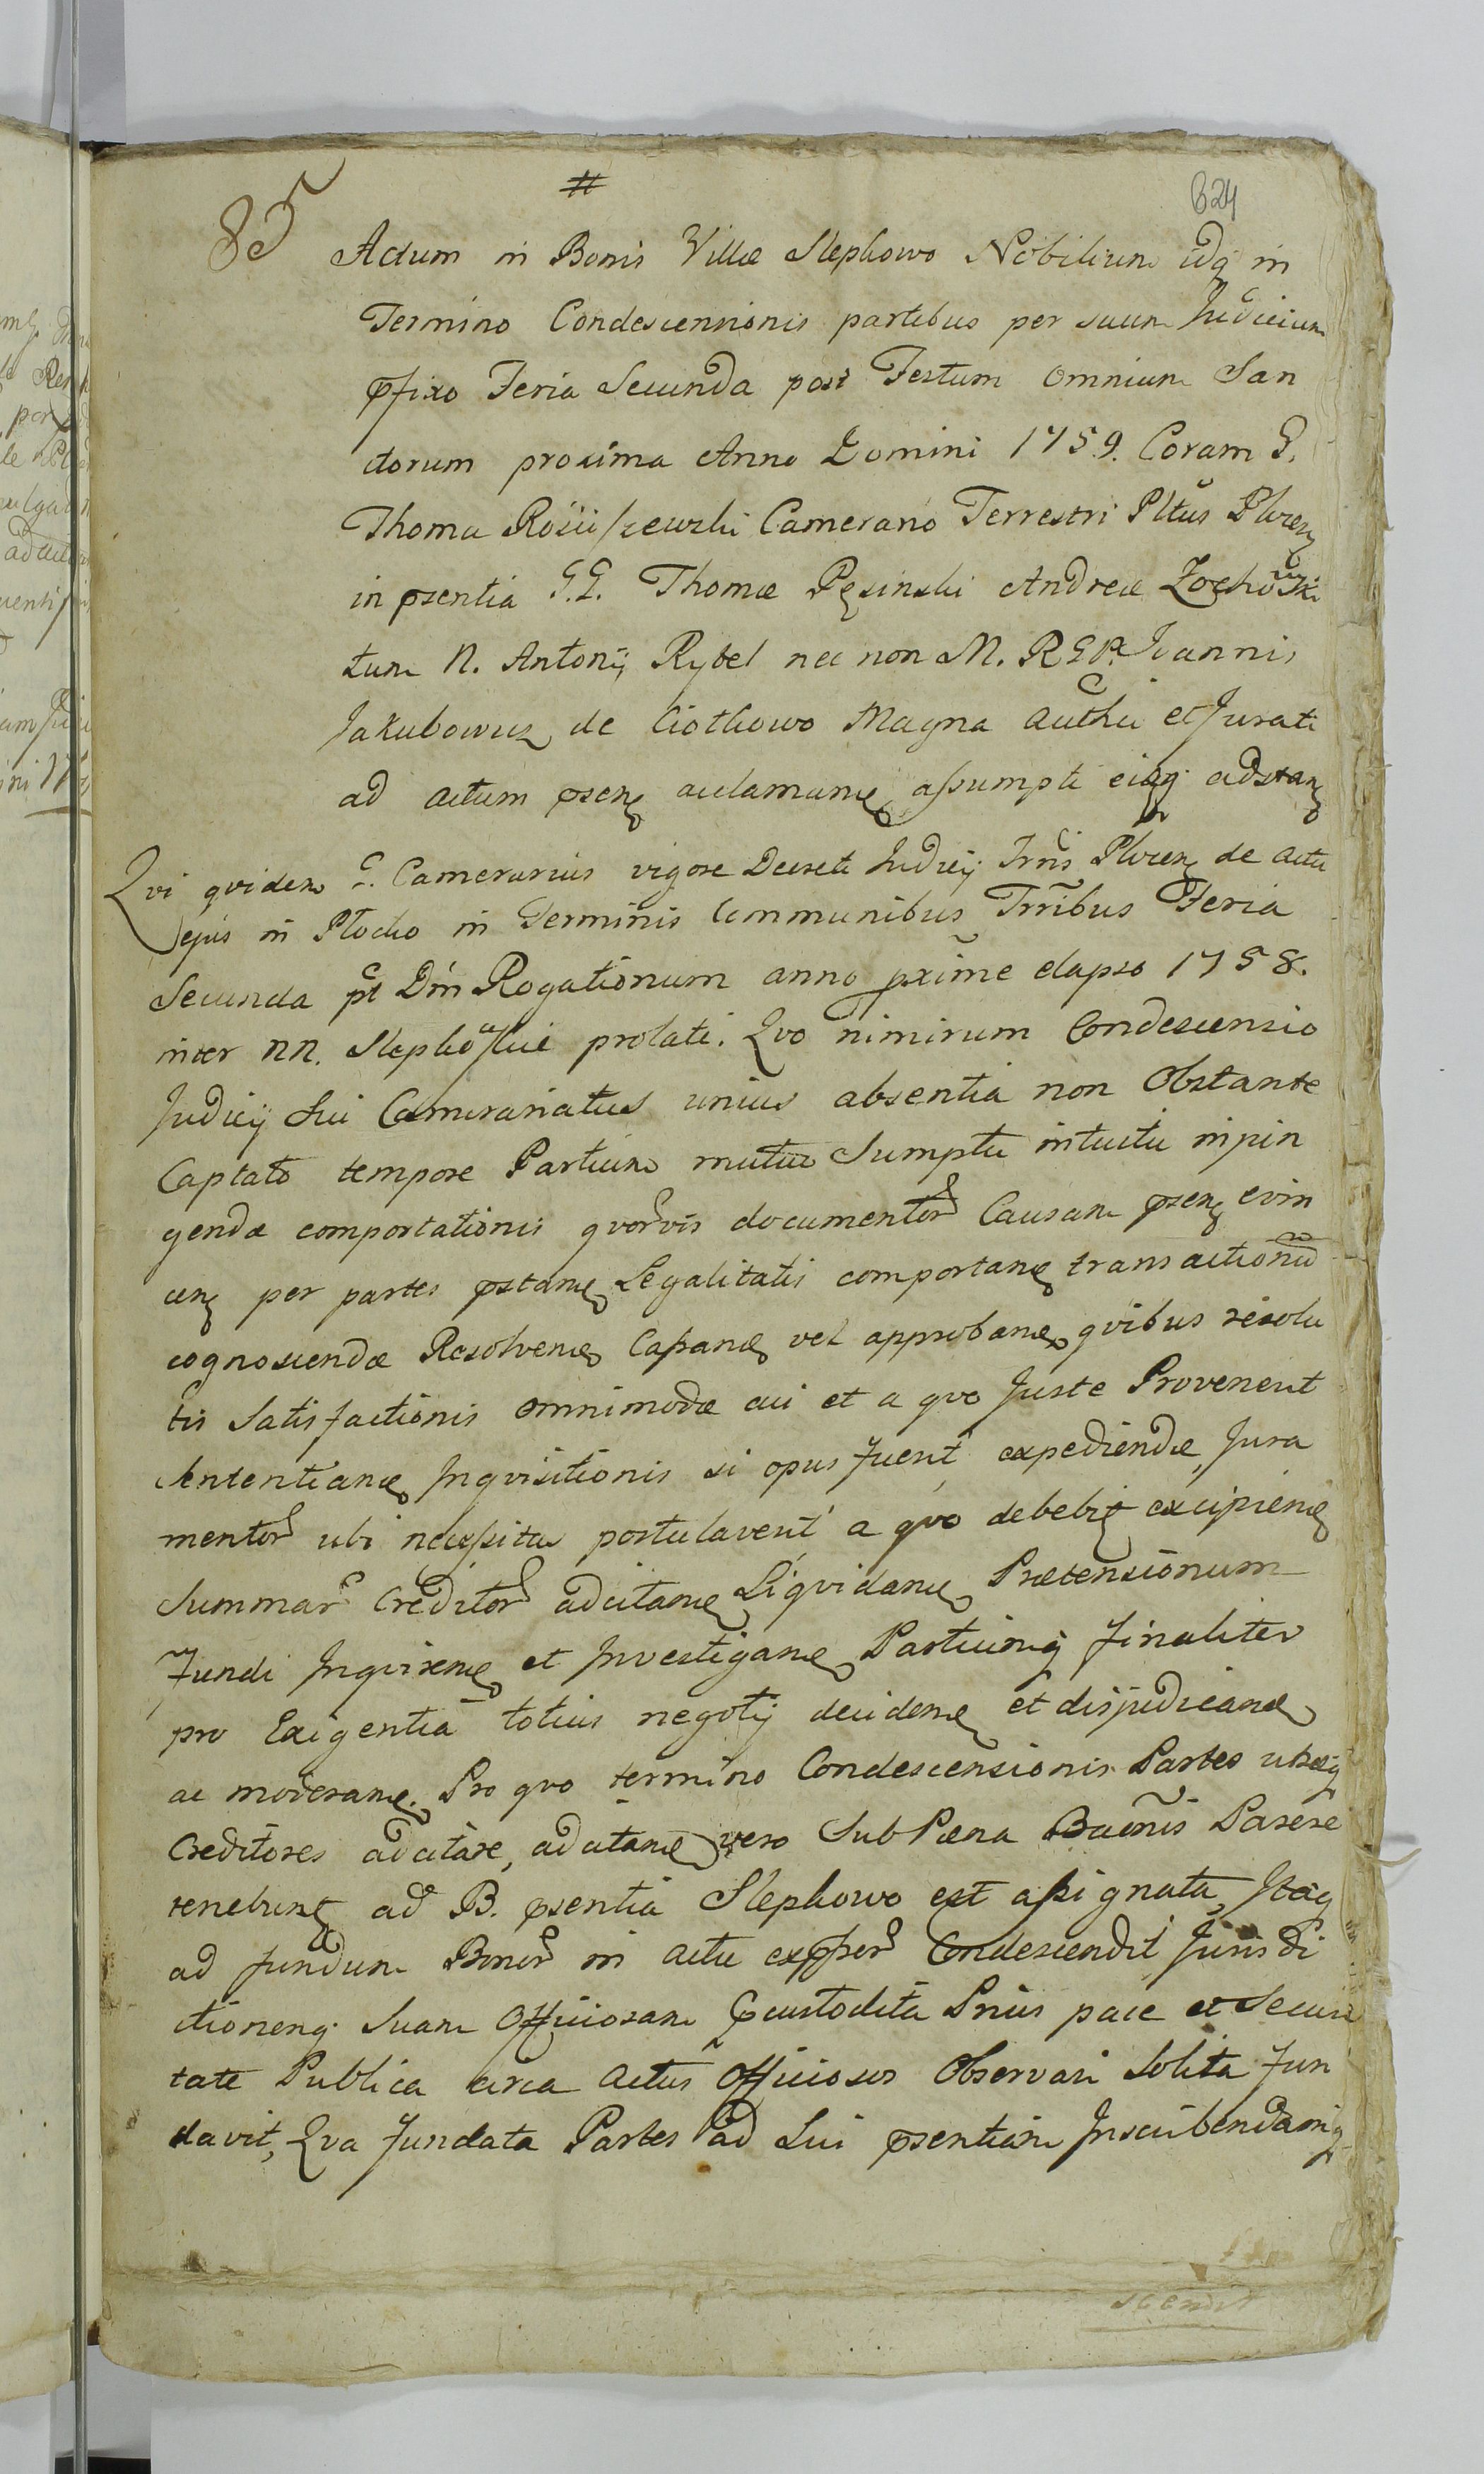 #
85
624
Actum in Bonis Villæ Slepkowo Nobilium idq in
Termino Condescensionis partibus per suum Judicium
pfixo Feria Secunda post Festum Omnium San
ctorum proxima Anno Domini 1759. Coram G.
Thoma Camerario Terrestri Pltus Plocen
in psentia G.G. Thomæ Pęsinski Andreæ Zochowski
tum N. Antonij Rybel nec non M. Joannis
Jakubowicz de Ciołkowo Magna authei et Jurati
ad actum psen aclamane assumpti eiqq adstan
Qvi qvidem G. Camerarius vigore Decreti Judicij Trris Plocen de actu
ejus in Plocko in Terminis Communibus Trribus Feria
Secunda pt Dm Rogationum anno pxime elapso 1758.
inter NN. Slepkowskie prolati. Qvo nimirum Condescensio
Judicij sui Camerariatus unius absentia non Obstante
Captato tempore Partium mutuo Sumptu intuitu inpin
gendæ comportationis qvorvis documentor Causam psen evin
cen per partes pstane Legalitatis comportane transactionu
cognoscendæ Resolvene Cassane vel approbane, qvibus resolu
tis Satisfactionis omnimodæ cui et a qvo Juste Provenerit
Sententiane Inqvisitionis si opus fuerit expediendæ, Jura
mentor ubi necessitas postulaverit a qvo debebit excipiene
Summar Creditor adcitane Liqvidane Prætensionum
Fundi Inqvirene et Investigane Partiumq finaliter
pro Exigentia totius negotij decidene et disjudicane
ac moderane. Pro qvo termino Condescensionis Partes utræq
Creditores adcitare, adcitane vero Sub Pæna Bannis Parere
tenebunt ad B. psentia Slepkowo est assignata, Itaq
ad fundum Bonor in actu expssor Condescendit Jurisdi
ctionemq Suam Officiosam Custodita Prius pace et Securi
tate Publica circa actus Officiosos Observari Solita fun
davit, Qva fundata Partes ad Sui psentiam Inscribendamq
scendit